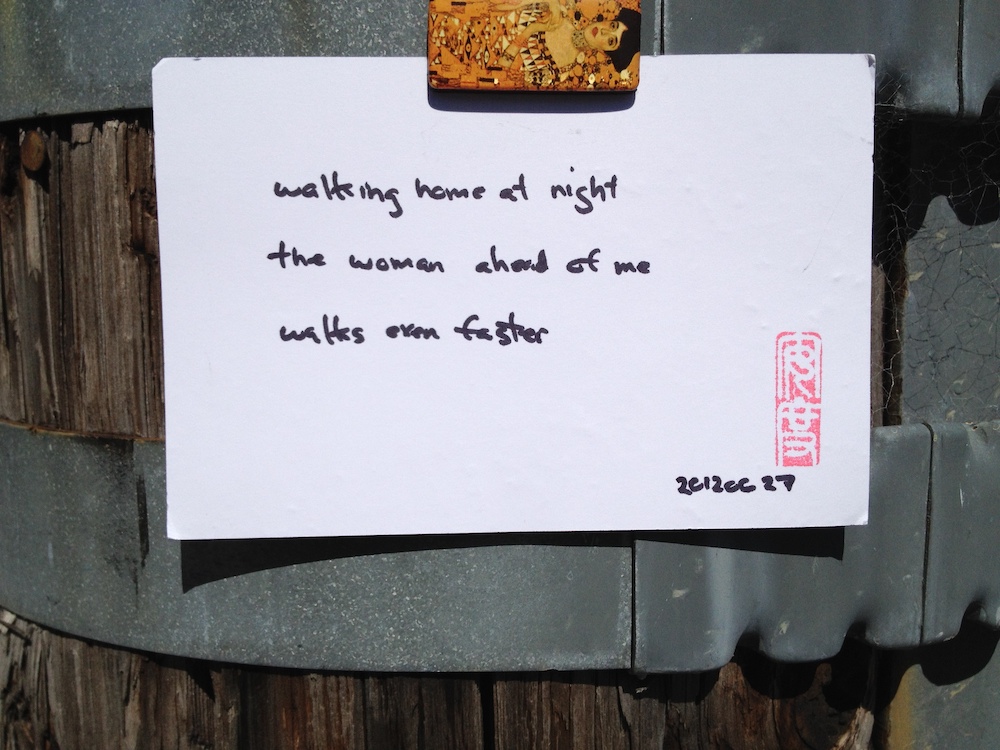 walking home at night
the woman ahead of me
walks even faster
20120627